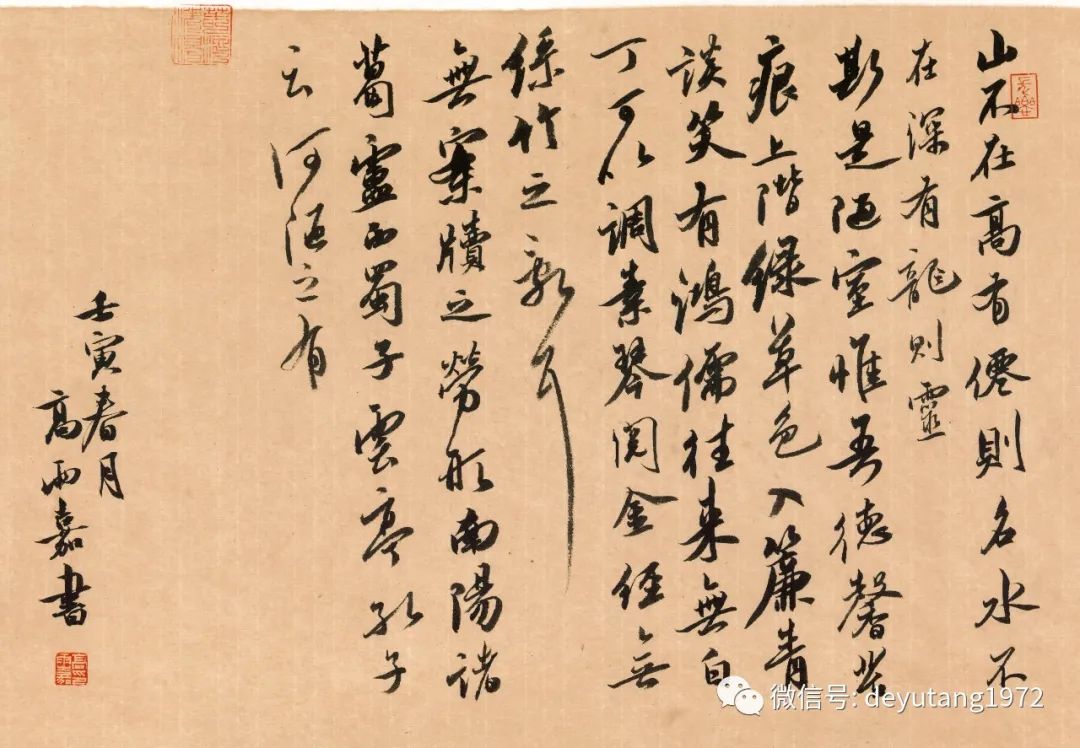 山不在高有僊則名水不
在深有龍則靈
斯是陋室惟吾德馨苔
痕上階綠草色入簾青
談笑有鴻儒往來無白
丁可以調素琴閱金經無
絲竹之亂耳
無案牘之勞形南陽諸
葛盧西蜀子雲亭孔子
云何陋之有
壬寅春月
高雨嘉書
微信号: deyutang1972